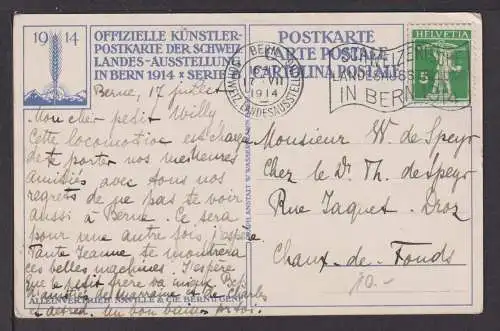 1914
OFFIZIELLE KÜNSTLER-
POSTKARTE DER SCHWEIZ.
LANDES-AUSSTELLUNG
IN BERN 1914 * SERIE
POSTKARTE
CARTE POSTALE
CARTOLINA POSTALE
HELVETIA
5
BERN
17. VII
1914
LANDESAUSSTELLUNG
SCHWEIZERISCHE
LANDESAUSSTELLUNG
IN BERN 1914
Berne, 17 juillet
Mon cher petit Willy
Cette locomotive est chargée
de te porter nos meilleures
amitiés avec tous nos
regrets de ne pas te voir
aussi à Berne. Ce sera
pour une autre fois, j'espère.
Tante Jeanne te montrera
ces belles machines. J'espère
que le petit frère va mieux.
Amitiés de et de Charles
et Alfred. Un bon baiser
Monsieur W. de Speyr
Chez le Dr. Th. de Speyr
Rue Jaquet-Droz
Chaux-de-Fonds
10.-
ALLEINVERTRIEB & CIE BERN